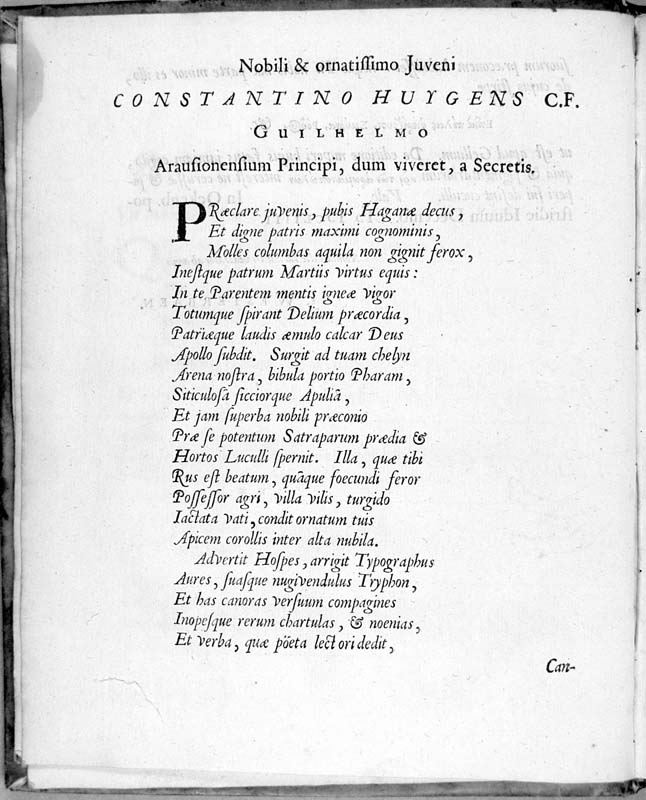 Nobili & ornatiſſimo Juveni
CONSTANTINO HUYGENS C.F.
GUILHELMO
Arauſionenſium Principi, dum viveret, a Secretis.
PRæclare juvenis, pubis Haganæ decus,
Et digne patris maximi cognominis,
Molles columbas aquila non gignit ferox,
Ineſtque patrum Martiis virtus equis:
In te Parentem mentis igneæ vigor
Totumque ſpirant Delium præcordia,
Patriæque laudis æmulo calcar Deus
Apollo ſubdit. Surgit ad tuam chelyn
Arena noſtra, bibula portio Pharam,
Siticuloſâ ſicciorque Apuliâ,
Et jam ſuperba nobili præconio
Præ ſe potentum Satraparum prædia &
Hortos Luculli ſpernit. Illa, quæ tibi
Rus eſt beatum, quâque foecundi feror
Poſſeſſor agri, villa vilis, turgido
Iactata vati, condit ornatum tuis
Apicem corollis inter alta nubila.
Advertit Hoſpes, arrigit Typographus
Aures, ſuaſque nugivendulus Tryphon,
Et has canoras verſuum compagines
Inopeſque rerum chartulas, & noenias,
Et verba, quæ pöeta lectori dedit,
Can-